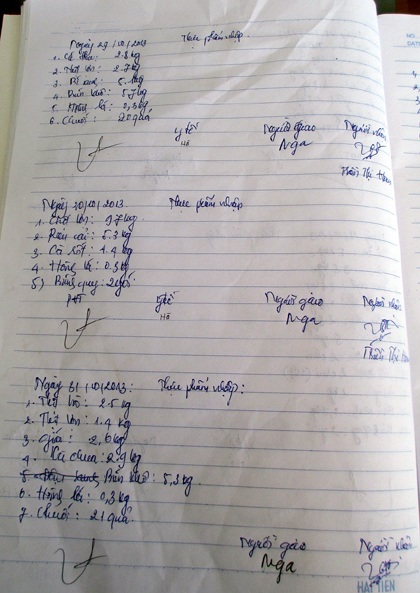 Ngày 29/10/2013 Thực phẩm nhập
1. Cá : 2.8kg
2. Thịt lợn : 2.7kg
3. Bí : kg
4. khô : 5.7kg
5. Hồng lá : 0,3kg
6. Chuối : 20 quả
y tế Người giao Người nhận
Hà Nga
Ngày 30/10/2013. Thực phẩm nhập
1. Thịt lợn : 9.7kg
2. Rau cải : 5.3kg
3. Cà rốt : 1.4kg
4. Hồng lá : 0.3kg
5) Bánh quy : 2 gói
PHT y tế Người giao Người nhận
Hà Nga
Ngày 31/10/2013: Thực phẩm nhập :
1. Thịt bò : 2.5kg
2. Thịt lợn : 1.4kg
3. giá : 2,6kg
4. Cà chua : 2.9kg
5. khô : 5,3kg.
6. Hồng lá : 0,3kg
7. Chuối : 21 quả.
Người giao Người nhận
Nga
HẢI TIẾN